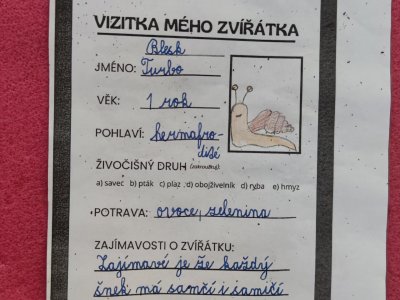 VIZITKA MÉHO ZVÍŘÁTKA
Blesk
JMÉNO: Turbo
VĚK: 1 rok
POHLAVÍ: hermafro-
dité
ŽIVOČIŠNÝ DRUH (zakroužkuj):
a) savec b) pták c) plaz d) obojživelník d) ryba e) hmyz
POTRAVA: ovoce, zelenina
ZAJÍMAVOSTI O ZVÍŘÁTKU:
Zajímavé je že každý
šnek má samčí i samičí